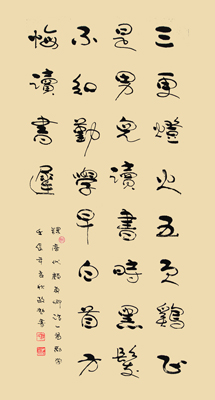 三更燈火五更鷄正
是男兒讀書時黑髮
不知勤學早白首方
悔讀書遲
唐代顏真卿詩一首